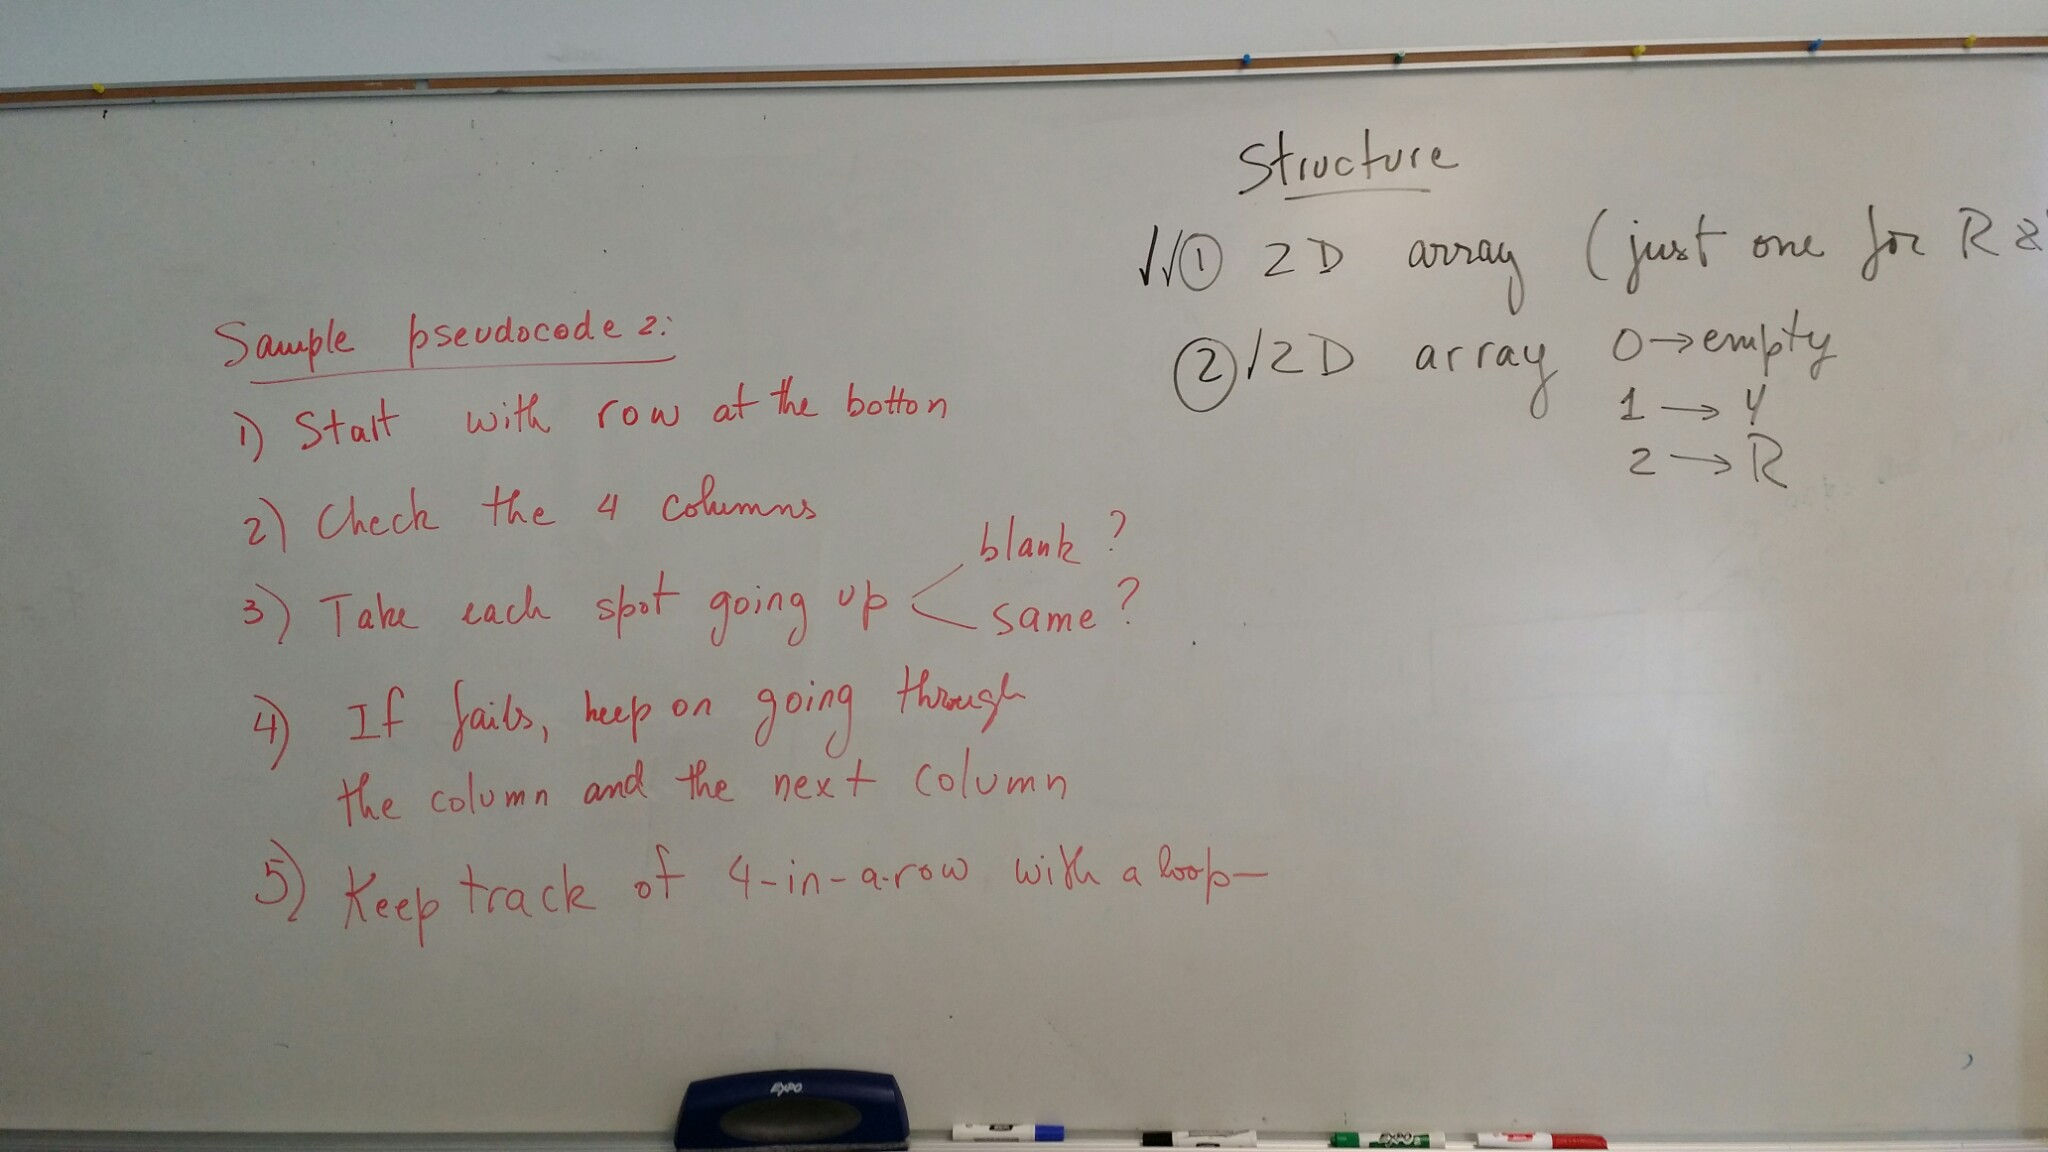 Structure
√√① 2D array (just one for R &
②√ 2D array 0→empty
1→Y
2→R
Sample pseudocode 2:
1) Start with row at the botton
2) Check the 4 columns
3) Take each spot going up < blank?
same?
4) If fails, keep on going through
the column and the next column
5) Keep track of 4-in-a-row with a loop—
EXPO
EXPO